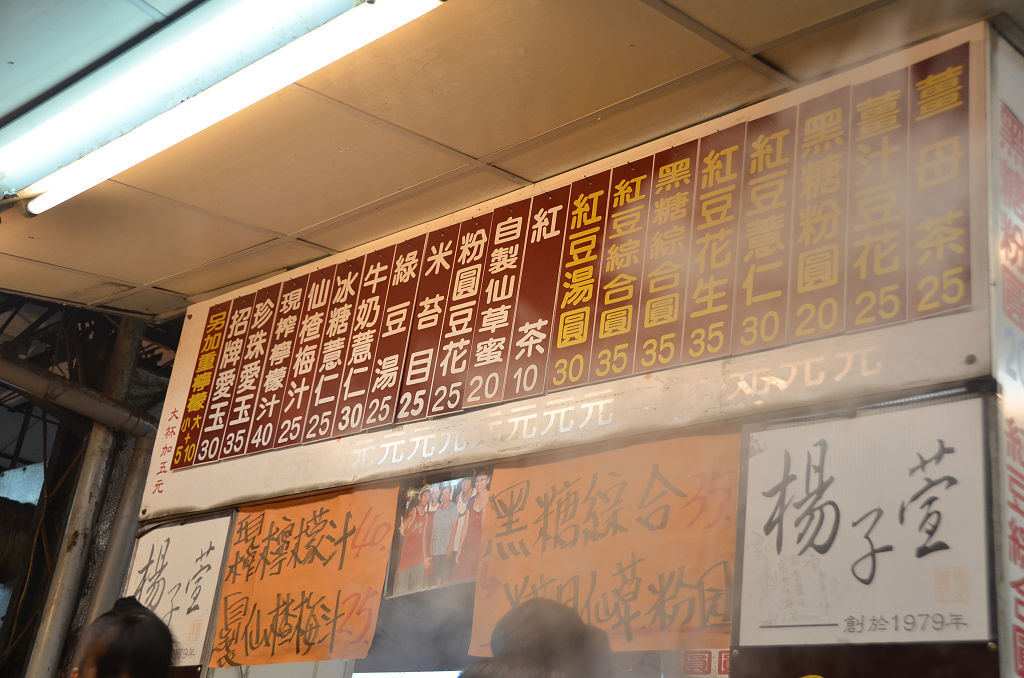 薑母茶 25
薑汁豆花 25
黑糖粉圓 20
紅豆薏仁 30
紅豆花生 35
黑糖綜合圓 35
紅豆綜合圓 35
紅豆湯圓 30
紅茶 10
自製仙草蜜 20
粉圓豆花 25
米苔目 25
綠豆湯 25
牛奶薏仁 30
冰糖薏仁 25
仙楂梅汁 25
現榨檸檬汁 40
珍珠愛玉 35
招牌愛玉 30
另加重檸檬 大+10 小5
大杯加五元
元元元元元元元
元元元元
楊子萱
創於1979年
黑糖綜合35
仙草粉圓
現榨檸檬汁40
仙楂梅汁25
楊子萱
1979年
黑糖粉圓20
紅豆綜合圓
圓圓